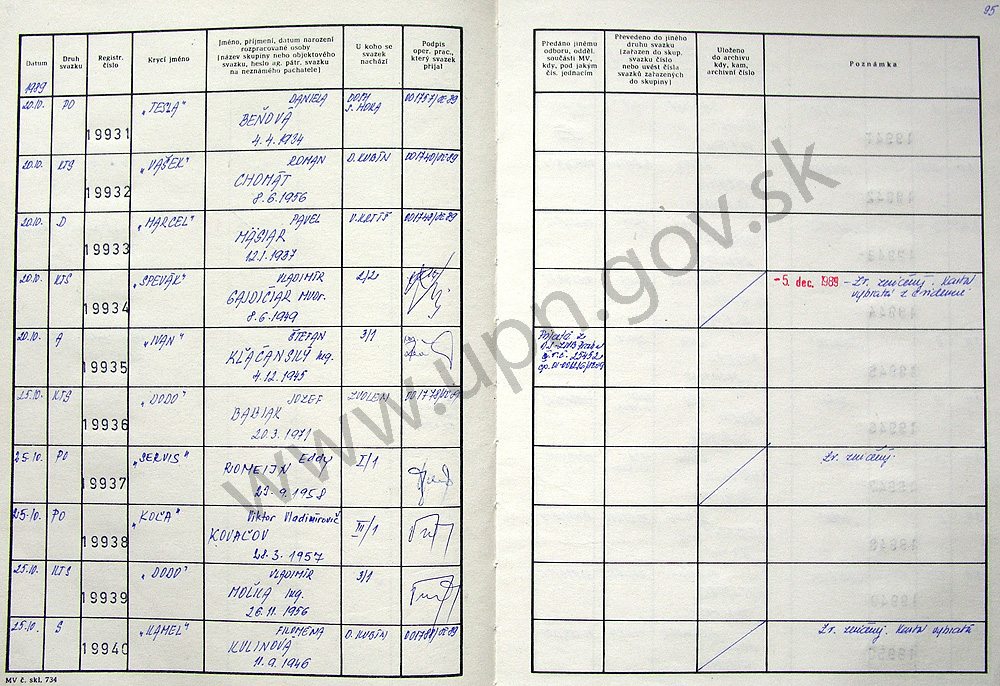 95
Datum
Druh svazku
Registr. číslo
Krycí jméno
Jméno, příjmení, datum narození
rozpracované osoby
(název skupiny nebo objektového
svazku, heslo ag. pátr. svazku
na neznámého pachatele)
U koho se
svazek
nachází
Podpis
oper. prac.,
který svazek
přijal
Předáno jinému
odboru, odděl.
součásti MV,
kdy, pod jakým
čís. jednacím
Převedeno do jiného
druhu svazku
(zařazen do skup.
svazku číslo
nebo uvést čísla
svazků zařazených
do skupiny)
Uloženo
do archivu
kdy, kam,
archivní číslo
Poznámka
1989
20.10. PO 19931 „TESLA" DANIELA
BEŇOVÁ
4.4.1934
20.10. KTS 19932 „VAŠEK" ROMAN D. KUBÍN
CHOMÁT
8.6.1956
20.10. D 19933 „MARCEL" PAVEL
MÄSIAR
12.1.1937
20.10. KTS 19934 „SPEVÁK" VLADIMÍR 2/2
GAJDIČIAR MVDr.
8.6.1949
- 5. dec. 1989 - Zv. zničený. Karta
vybratá z evidencie
20.10. A 19935 „IVAN" ŠTEFAN 3/1
KĽAČANSKÝ Ing.
4.12.1945
25.10. KTS 19936 „DODO" JOZEF ZVOLEN
BABIAK
20.3.1971
25.10. PO 19937 „SERVIS" Eddy I/1
ROMEIJN
23.9.1958
Zv. zničený.
25.10. PO 19938 „KOĽA" Viktor Vladimírovič III/1
KOVAĽOV
28.3.1957
25.10. KTS 19939 „DODO" VLADIMÍR 3/1
MOLČKA Ing.
26.11.1956
25.10. S 19940 „KAMEL" FILOMENA D. KUBÍN
KULINOVÁ
11.9.1946
Zv. zničený. Karta vybratá
MV č. skl. 734
www.upn.gov.sk